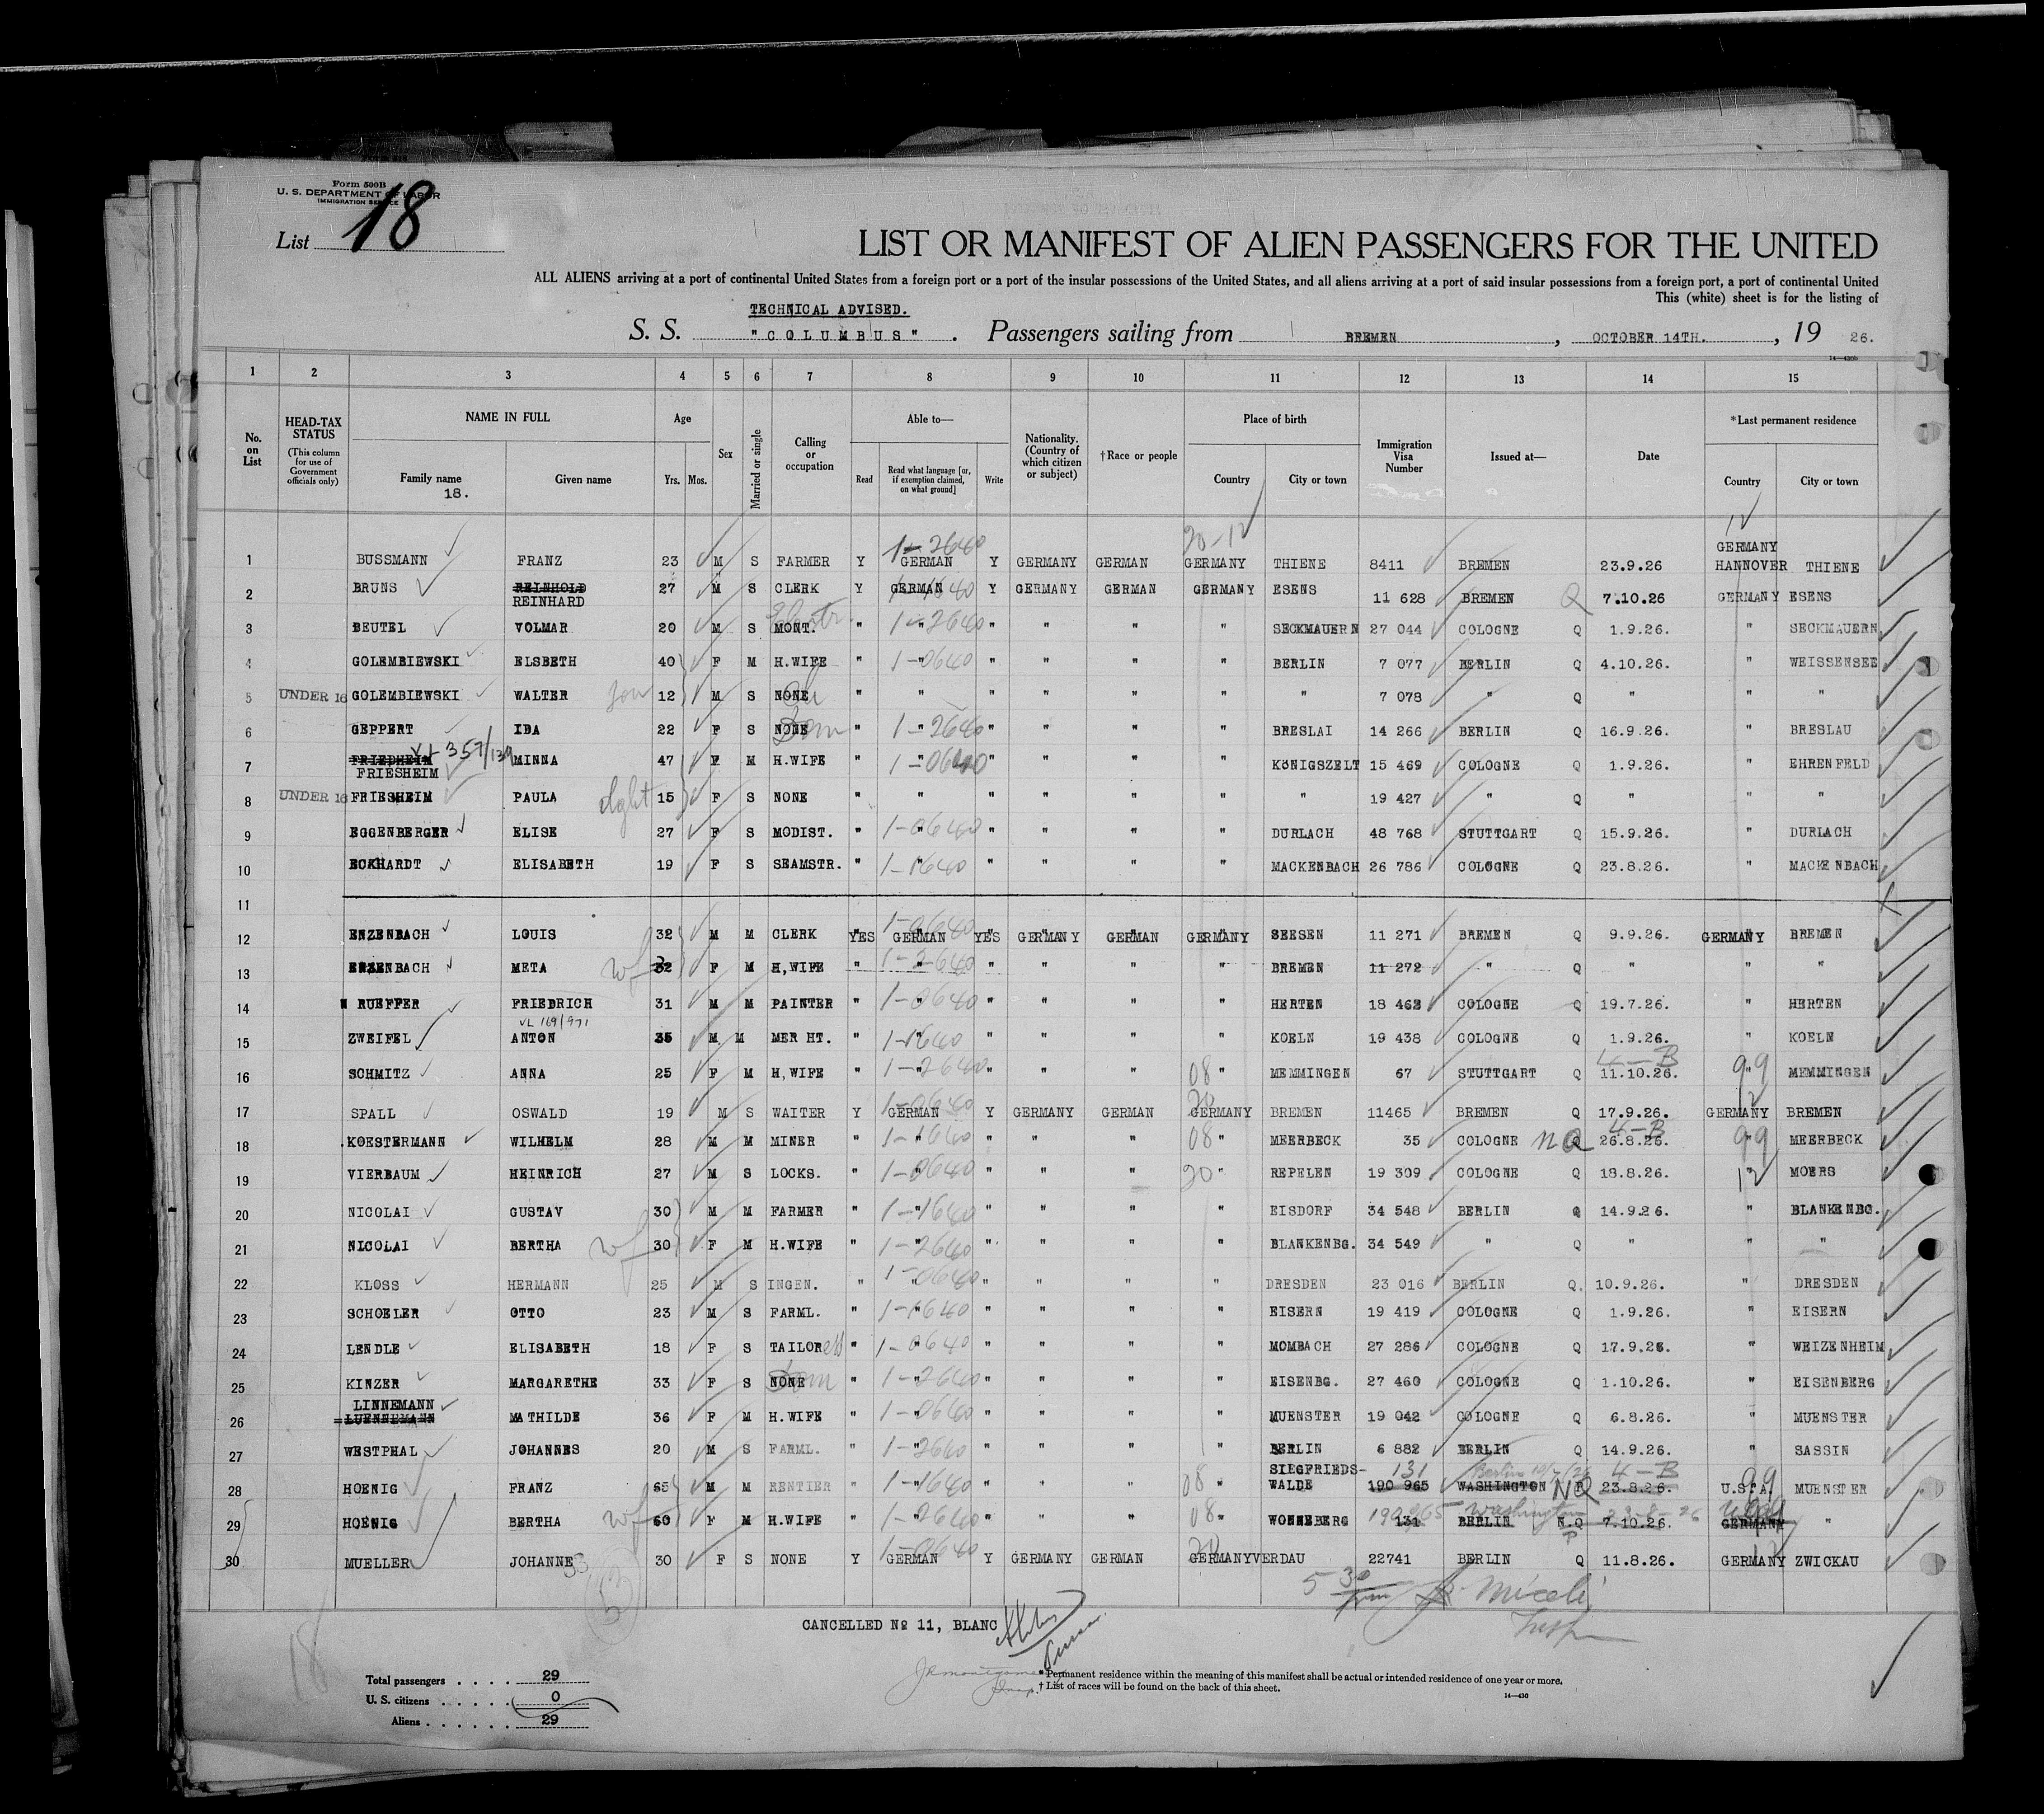 Form 500B
U. S. DEPARTMENT OF LABOR
IMMIGRATION SERVICE
List 18
LIST OR MANIFEST OF ALIEN PASSENGERS FOR THE UNITED
ALL ALIENS arriving at a port of continental United States from a foreign port or a port of the insular possessions of the United States, and all aliens arriving at a port of said insular possessions from a foreign port, a port of continental United
This (white) sheet is for the listing of
TECHNICAL ADVISED.
S. S. "COLUMBUS". Passengers sailing from BREMEN, OCTOBER 14TH., 19 26.
14—430b
1 2 3 4 5 6 7 8 9 10 11 12 13 14 15
No. on List
HEAD-TAX STATUS
(This column for use of Government officials only)
NAME IN FULL
Family name
18.
Given name
Age
Yrs. Mos.
Sex
Married or single
Calling or occupation
Able to—
Read
Read what language [or, if exemption claimed, on what ground]
Write
Nationality. (Country of which citizen or subject)
†Race or people
Place of birth
Country
City or town
Immigration Visa Number
Issued at—
Date
*Last permanent residence
Country
City or town
20-12 12
1 BUSSMANN FRANZ 23 M S FARMER Y 1-2640 GERMAN Y GERMANY GERMAN GERMANY THIENE 8411 BREMEN 23.9.26 GERMANY HANNOVER THIENE
2 BRUNS REINHOLD REINHARD 27 M S CLERK Y GERMAN Y GERMANY GERMAN GERMANY ESENS 11 628 BREMEN Q 7.10.26 GERMANY ESENS
3 BEUTEL VOLMAR 20 M S MONT. " 1-2640 " " " " SECKMAUERN 27 044 COLOGNE Q 1.9.26. " SECKMAUERN
4 GOLEMBIEWSKI ELSBETH 40 F M H.WIFE " 1-0640 " " " " BERLIN 7 077 BERLIN Q 4.10.26. " WEISSENSEE
5 UNDER 16 GOLEMBIEWSKI WALTER son 12 M S NONE " " " " " " " 7 078 " Q " " "
6 GEPPERT IDA 22 F S NONE Dom " 1-2640 " " " " BRESLAI 14 266 BERLIN Q 16.9.26. " BRESLAU
7 FRIEDHEIM FRIESHEIM MINNA 47 F M H.WIFE " 1-0640 " " " " KÖNIGSZELT 15 469 COLOGNE Q 1.9.26. " EHRENFELD
8 UNDER 16 FRIESHEIM PAULA dght 15 F S NONE " " " " " " " 19 427 " Q " " "
9 EGGENBERGER ELISE 27 F S MODIST. " 1-0640 " " " " DURLACH 48 768 STUTTGART Q 15.9.26. " DURLACH
10 ECKHARDT ELISABETH 19 F S SEAMSTR. " 1-1640 " " " " MACKENBACH 26 786 COLOGNE Q 23.8.26. " MACKENBACH
11
12 ENZENBACH LOUIS 32 M M CLERK YES 1-0640 GERMAN YES GERMANY GERMAN GERMANY SEESEN 11 271 BREMEN Q 9.9.26. GERMANY BREMEN
13 ENZENBACH META wf 32 F M H,WIFE " 1-2640 " " " " BREMEN 11 272 " Q " " "
14 RUEFFER FRIEDRICH 31 M M PAINTER " 1-0640 " " " " HERTEN 18 462 COLOGNE Q 19.7.26. " HERTEN
15 ZWEIFEL ANTON 35 M M MER HT. " 1-1640 " " " " KOELN 19 438 COLOGNE Q 1.9.26. " KOELN
16 SCHMITZ ANNA 25 F M H,WIFE " 1-2640 " " " 08 " MEMMINGEN 67 STUTTGART Q 4-B 11.10.26. 99 " MEMMINGEN
17 SPALL OSWALD 19 M S WAITER Y 1-0640 GERMAN Y GERMANY GERMAN 20 GERMANY BREMEN 11465 BREMEN Q 17.9.26. 12 GERMANY BREMEN
18 KOESTERMANN WILHELM 28 M M MINER " 1-1640 " " " 08 " MEERBECK 35 COLOGNE NQ 4-B 26.8.26. 99 " MEERBECK
19 VIERBAUM HEINRICH 27 M S LOCKS. " 1-0640 " " " 20 " REPELEN 19 309 COLOGNE Q 18.8.26. 12 " MOERS
20 NICOLAI GUSTAV 30 M M FARMER " 1-1640 " " " " EISDORF 34 548 BERLIN Q 14.9.26. " BLANKENBG.
21 NICOLAI BERTHA wf 30 F M H.WIFE " 1-2640 " " " " BLANKENBG. 34 549 " Q " " "
22 KLOSS HERMANN 25 M S INGEN. " 1-0640 " " " " DRESDEN 23 016 BERLIN Q. 10.9.26. " DRESDEN
23 SCHOELER OTTO 23 M S FARML. " 1-1640 " " " " EISERN 19 419 COLOGNE Q 1.9.26. " EISERN
24 LENDLE ELISABETH 18 F S TAILORess " 1-0640 " " " " MOMBACH 27 286 COLOGNE Q 17.9.26. " WEIZENHEIM
25 KINZER MARGARETHE 33 F S NONE Dom " 1-2640 " " " " EISENBG. 27 460 COLOGNE Q 1.10.26. " EISENBERG
26 LINNEMANN LUENNEMANN MATHILDE 36 F M H.WIFE " 1-0640 " " " " MUENSTER 19 042 COLOGNE Q 6.8.26. " MUENSTER
27 WESTPHAL JOHANNES 20 M S FARML. " 1-2640 " " " " BERLIN 6 882 BERLIN Q 14.9.26. " SASSIN
28 HOENIG FRANZ 65 M M RENTIER " 1-1640 " " " 08 " SIEGFRIEDS-WALDE 131 190 965 Berlin WASHINGTON NQ 4-B 23.8.26. 99 U.S.A. MUENSTER
29 HOENIG BERTHA wf 60 F M H.WIFE " 1-2640 " " " 08 " WONNEBERG 190965 131 Washington BERLIN N.Q P 23-8-26 7.10.26. GERMANY "
30 MUELLER JOHANNE 30 F S NONE Y 1-0640 GERMAN Y GERMANY GERMAN 20 GERMANY VERDAU 22741 BERLIN Q 11.8.26. 12 GERMANY ZWICKAU
53
5 30 pm Miceli
Insp
CANCELLED No 11, BLANC
18
Total passengers 29
U. S. citizens 0
Aliens 29
* Permanent residence within the meaning of this manifest shall be actual or intended residence of one year or more.
† List of races will be found on the back of this sheet.
14—430